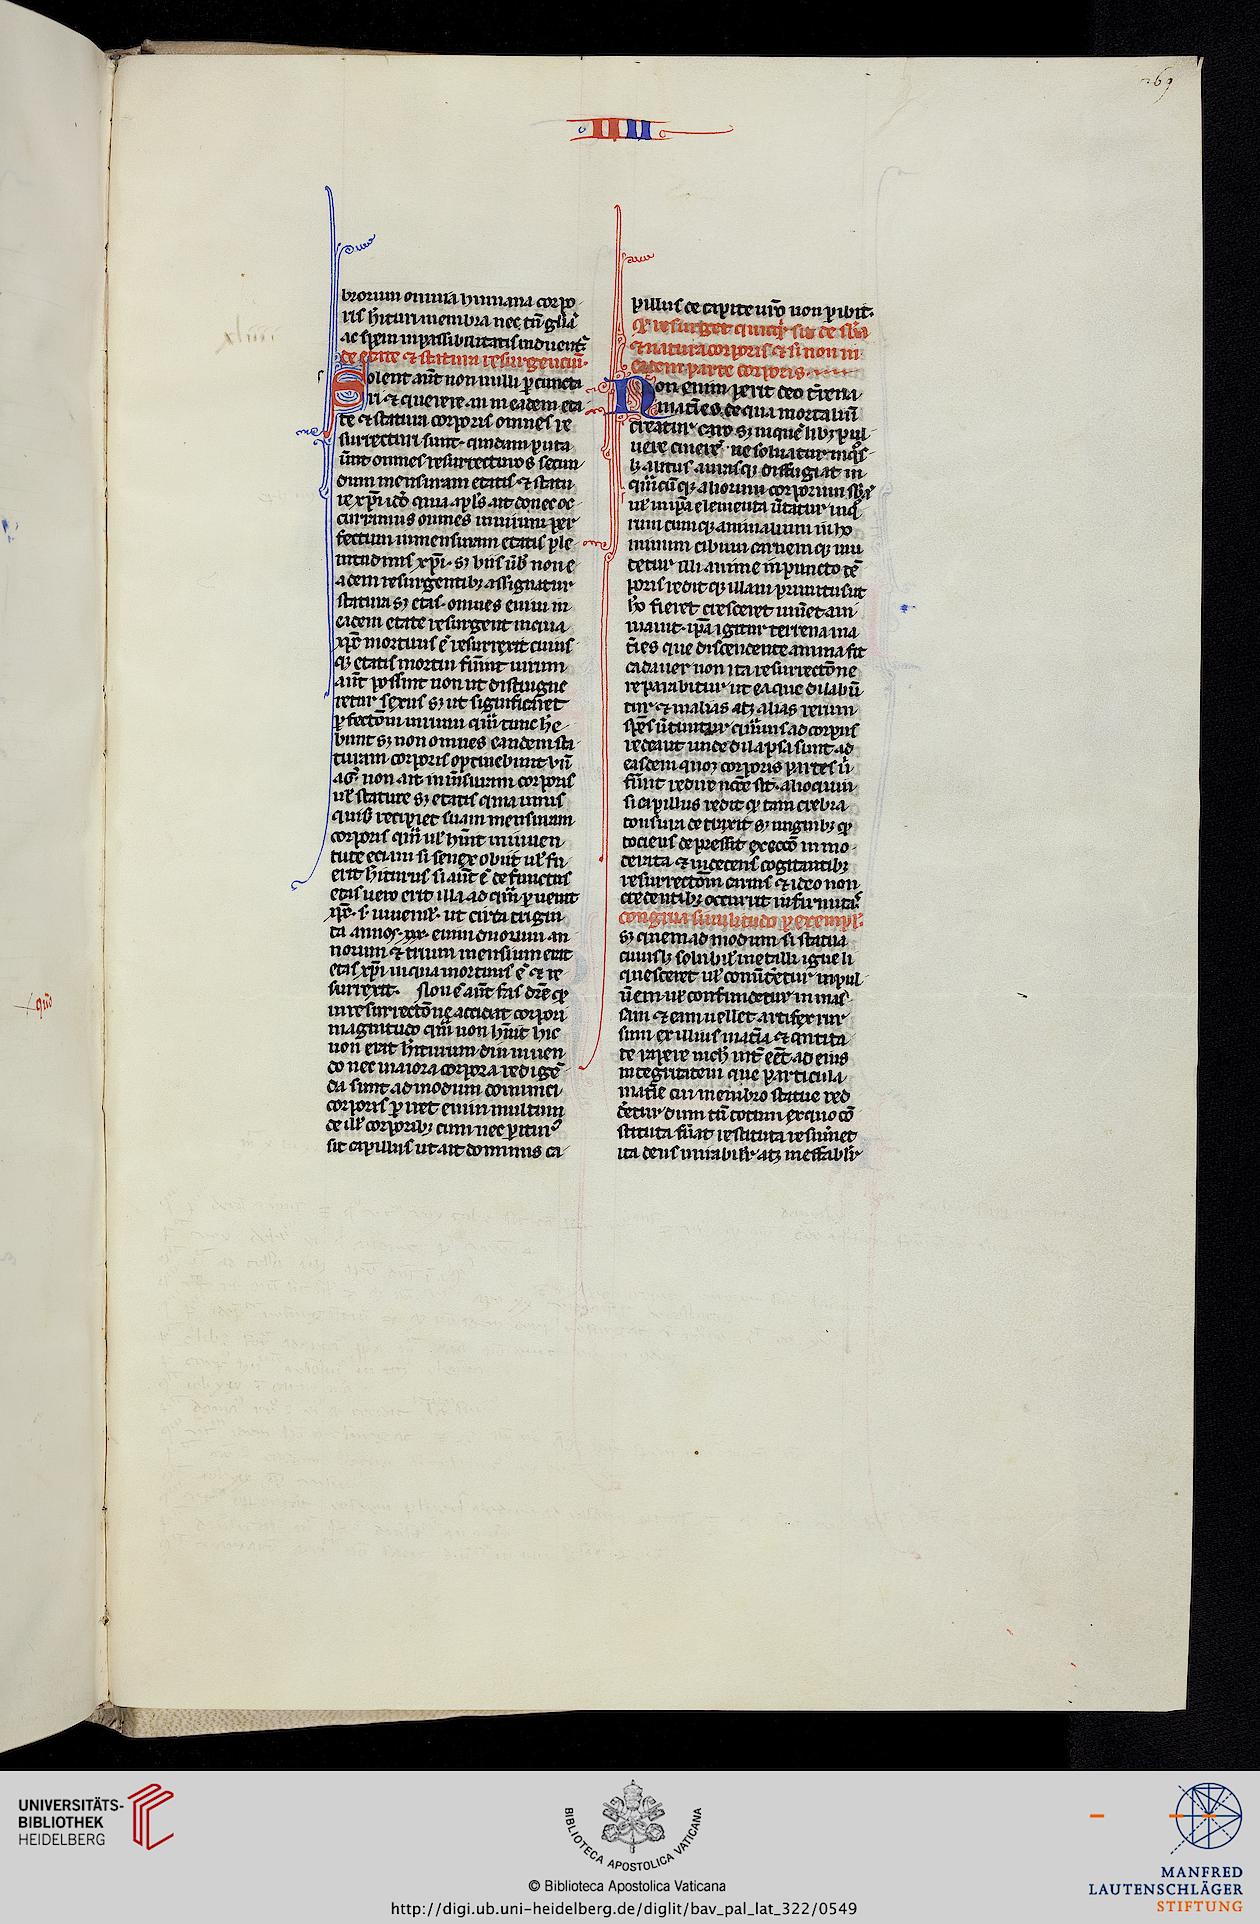 269
IIII
brorum omnia humana corpo
ris hituri membra nec tn̄ glīā
ac spem inpassibilitatis induent᷑
de etate ⁊ statura resurgencium.
Solent aūt non nulli p̄cuncta
ri ⁊ querere. an in eadem eta
te ⁊ statura corporis omnes re
surrecturi sunt. quidam puta
uerūt omnes resurrecturos secun
dum mensuram etatis ⁊ statu
re xp̄i. ido quia apl̄s ait donec oc
curramus omnes in uirum per
fectum in mensuram etatis ple
nitudinis xp̄i. sꝫ hiis ūbis non e
adem resurgentibꝫ assignatur
statura sꝫ etas. omnes enim in
eadem etate resurgent in qua
xp̄c mortuus ē ⁊ resurrexit cuius
qꝫ etatis mortui fūint uirum
aūt possint non ut distingue
retur sexus sꝫ ut significāret
ꝑfectōm uirium quā tunc hē
bunt sꝫ non omnes eandem sta
turam corporis optinebunt vn̄
aḡ. non ait in mēsuram corporis
ul̄ stature sꝫ etatis quia unus
quisꝫ recipiet suam mensuram
corporis quā ul̄ hūit in iuuen
tute eciam si senex obiit ul̄ fu
erit hiturus si aūt ē defunctus
etas uero erit illa ad quā ꝑuenit
xp̄c. s. iuuenil̄. ut circa trigin
ta annos. xxx. enim duorum an
norum ⁊ trium mensium erat
etas xp̄i in qua mortuus ē ⁊ re
surrexit. Non ē aūt fas dr̄e qꝫ
in resurrectōne accidat corpori
magnitudo quā non hūit hic
non erat hiturum diu uiuen
do nec maiora corpora redigē
da sunt ad modum communi
corporis ꝑiret enim multum
de ill̄ corporibꝫ cum nec ꝑiturꝰ
sit capillus ut ait dominus ca
pillus de capite uro non ꝑibit.
Qꝫ resurget quicq̄ fuit de sb̄a
⁊ natura corporis ⁊ si non in
eadem parte corporis
Non enim perit deo terrena
materies de qua mortaliū
creatur caro sꝫ in quēlibꝫ pul
uere cinerē ue soluatur in qꝫs
lꝫ alitus aurasqꝫ diffugiat in
quācūqꝫ aliorum corporum sb̄ā
ul̄ in ip̄a elementa ūtatur in qꝫ
rum cumqꝫ animalium ⁊ ho
minum cibum carnemqꝫ mu
tetur illi anime in puncto tē
poris redit que illam primitus ut
hō fieret cresceret uiūet ani
mauit. ip̄a igitur terrena ma
teries que discedente anima fit
cadauer non ita resurrectōne
reparabitur ut ea que dilabū
tur ⁊ in alias atqꝫ alias rerum
spēs ūtuntur quāuis ad corpus
redeant unde dilapsa sunt ad
easdem quoqꝫ corporis partes ū
fūint redire necēe sit. alioquin
si capillus redit qꝫ tam crebra
tonsura detraxit sꝫ unguibꝫ qꝫ
tociens depressit execcō inmo
derata ⁊ indecens cogitantibꝫ
resurrectōm carnis ⁊ ideo non
credentibꝫ occurrit informitas.
congrua similitudo ꝑ exempl̄.
sꝫ quemadmodum si statua
cuiuslꝫ solubil̄ metalli igne li
quesceret ul̄ contēretur in pul
uerem ul̄ confunderetur in mas
sam ⁊ eam uellet artifex rur
sum ex illius mat̄ia ⁊ qntita
te reparare nichil int̄eēt ad eius
integritatem que particula
mat̄ie cui membro statue red
deretur dum tn̄ totum ex quo cō
stituta fūat restituta resumet
ita deus mirabilr̄ atqꝫ ineffabilr̄
qn̄o
UNIVERSITÄTS-
BIBLIOTHEK
HEIDELBERG
BIBLIOTECA APOSTOLICA VATICANA
© Biblioteca Apostolica Vaticana
http://digi.ub.uni-heidelberg.de/diglit/bav_pal_lat_322/0549
MANFRED
LAUTENSCHLÄGER
STIFTUNG